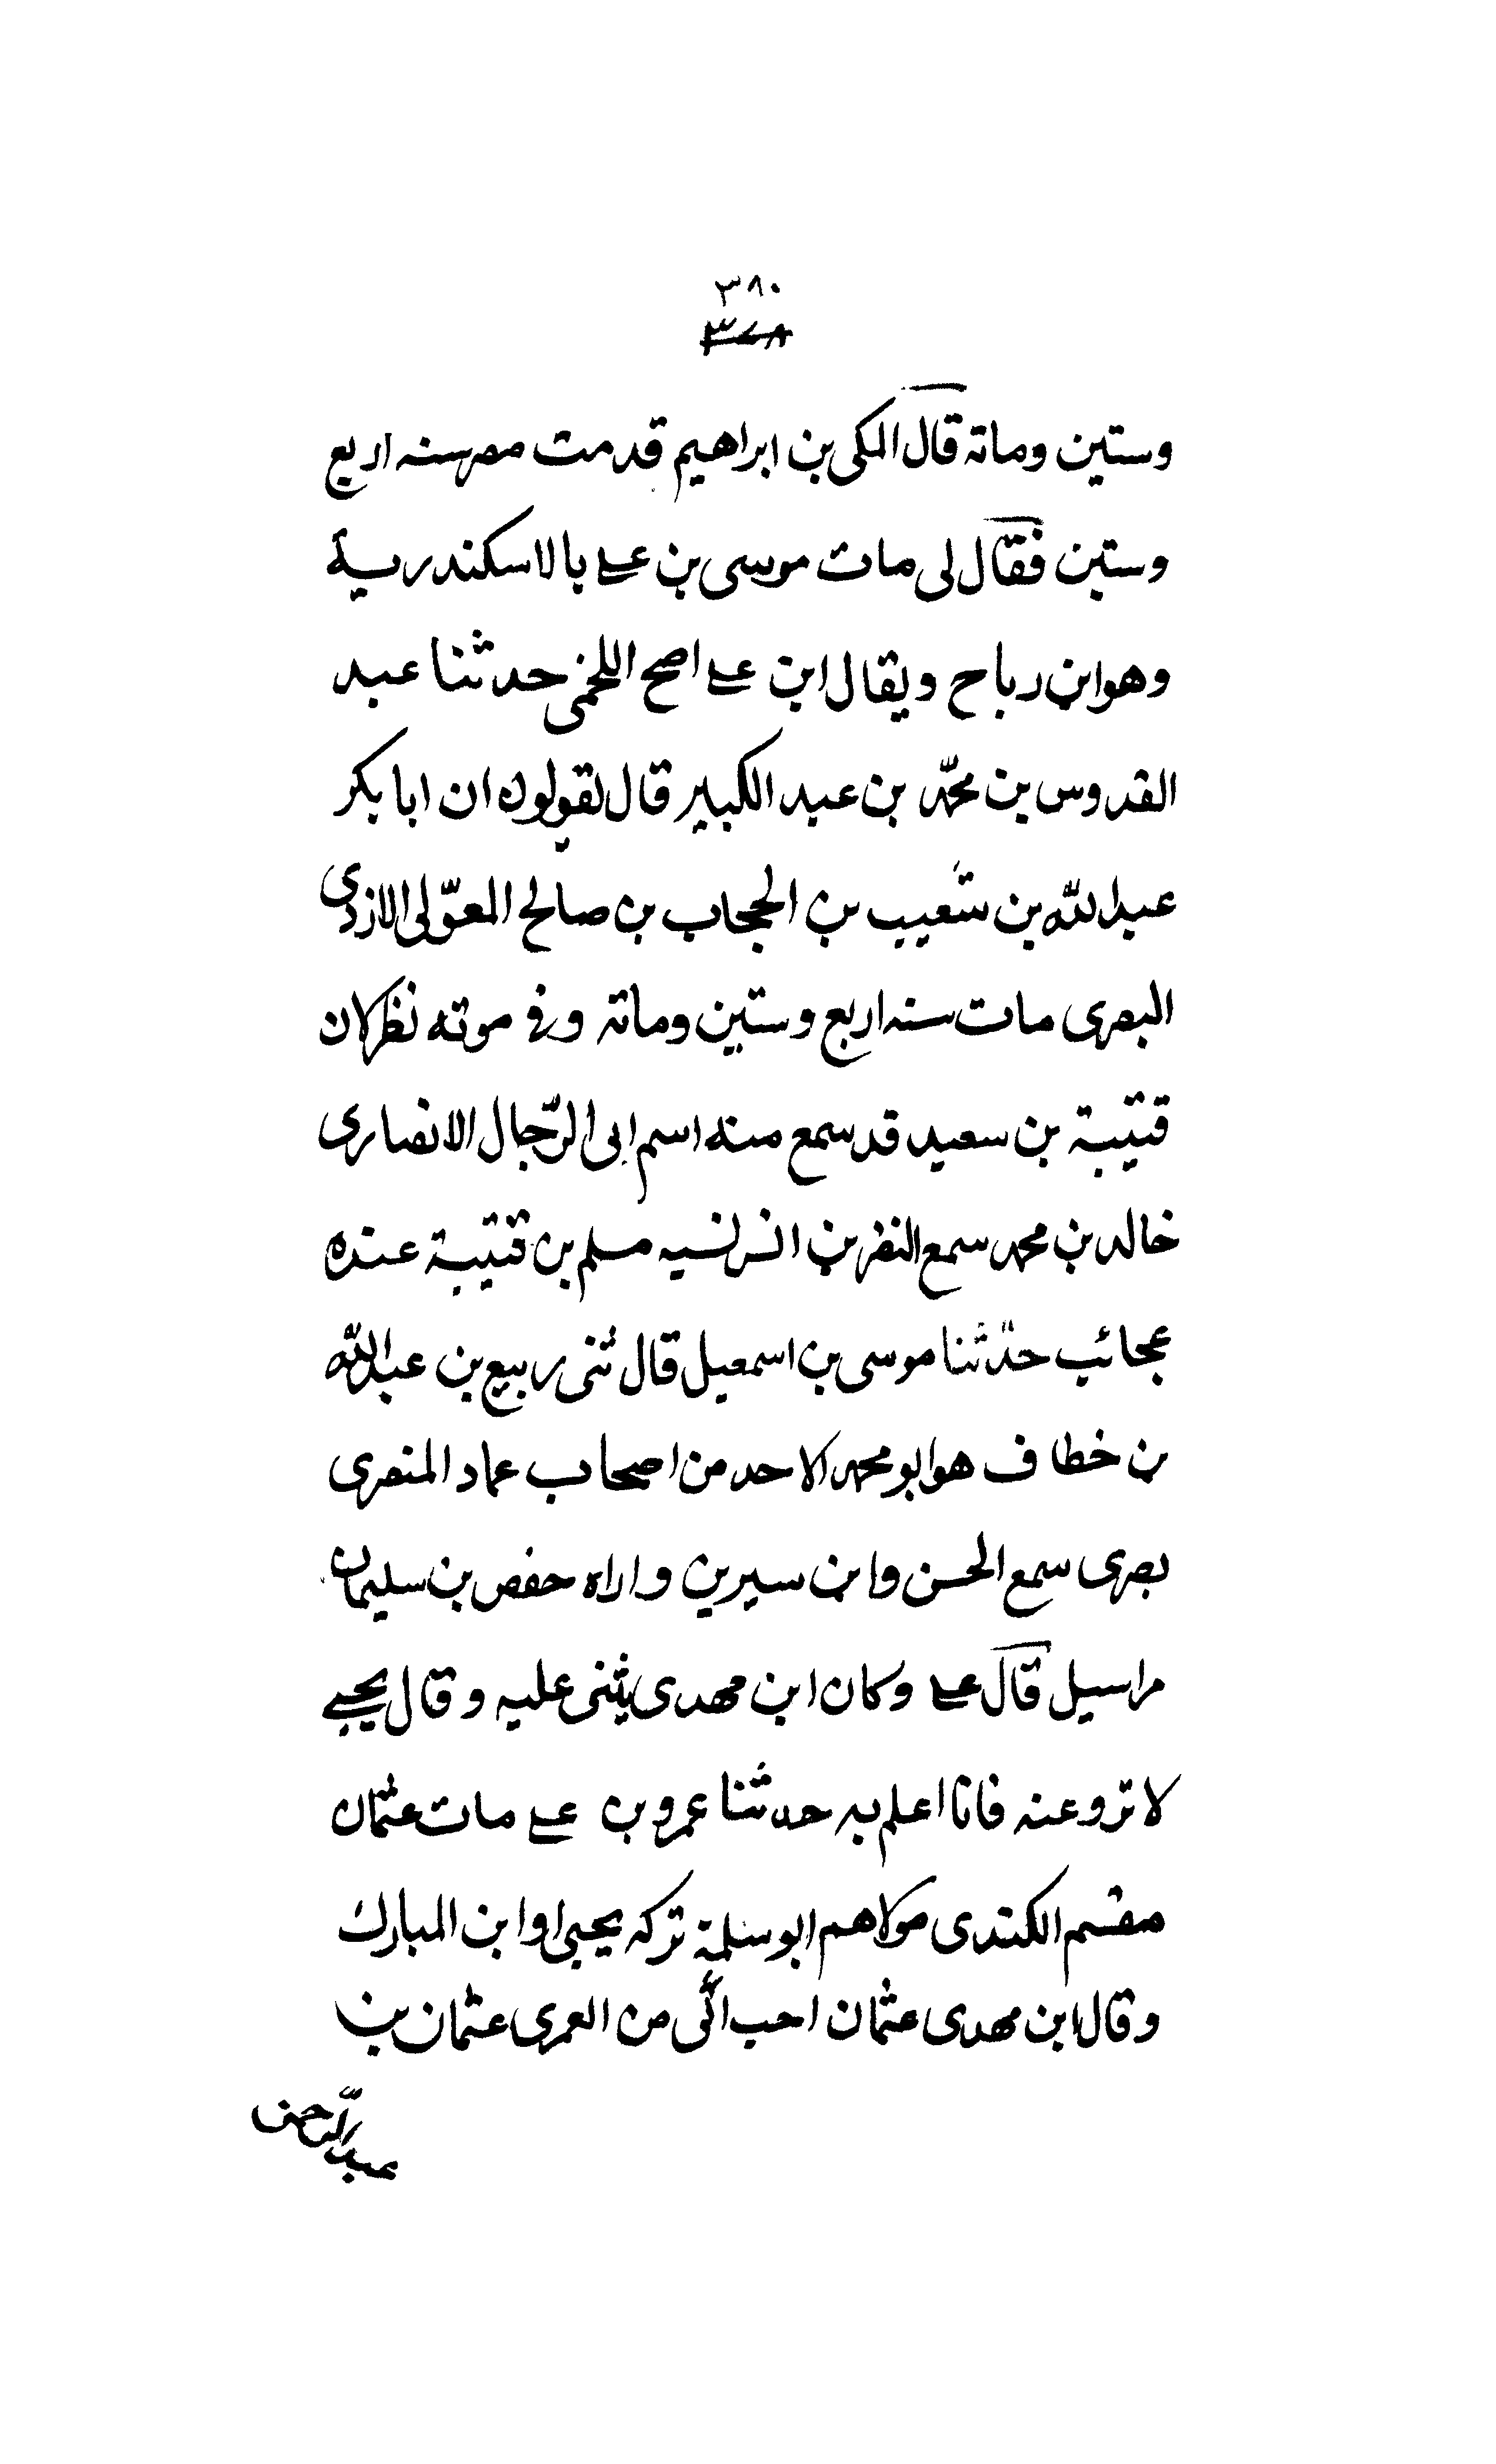 ٣٨٠
٣٧٨
وستين ومائة قال المكى بن ابراهيم قدمت مصر سنه اربع
وستين فقال لى مات موسى بن على بالاسكندرية
وهو ابن رباح ويقال ابن على اصح اللخمى حدثنا عبد
القدوس بن محمّد بن عبد الكبير قال يقولون ان ابا بكر
عبد الله بن شعيب بن الحبحاب بن صالح المعوّلى الازدى
البصرى مات سنه اربع وستين ومائة وفى موته نظر كان
قتيبة بن سعيد قد سمع منه اسم ابى الرّجال الانصارى
خالد بن محمد سمع النضر بن انس نسبه مسلم بن قتيبة عنده
عجائب حدّثنا موسى بن اسمعيل قال ثنى ربيع بن عبد الله
بن خطاف هو ابو محمد الاحد من اصحاب عماد المنصرى
بصرى سمع الحسن وابن سيرين واراه حفص بن سليمان
مراسيل قال على وكان ابن مهدى يثنى عليه وقال يحيى
لا ترو عنه فانا اعلم به حدثنا عمرو بن على مات عثمان
مقسم الكندى مولاهم ابو سلمة تركه يحيى وابن المبارك
وقال ابن مهدى عثمان احب الىّ من العمرى عثمان بن
عبد الرّحمن